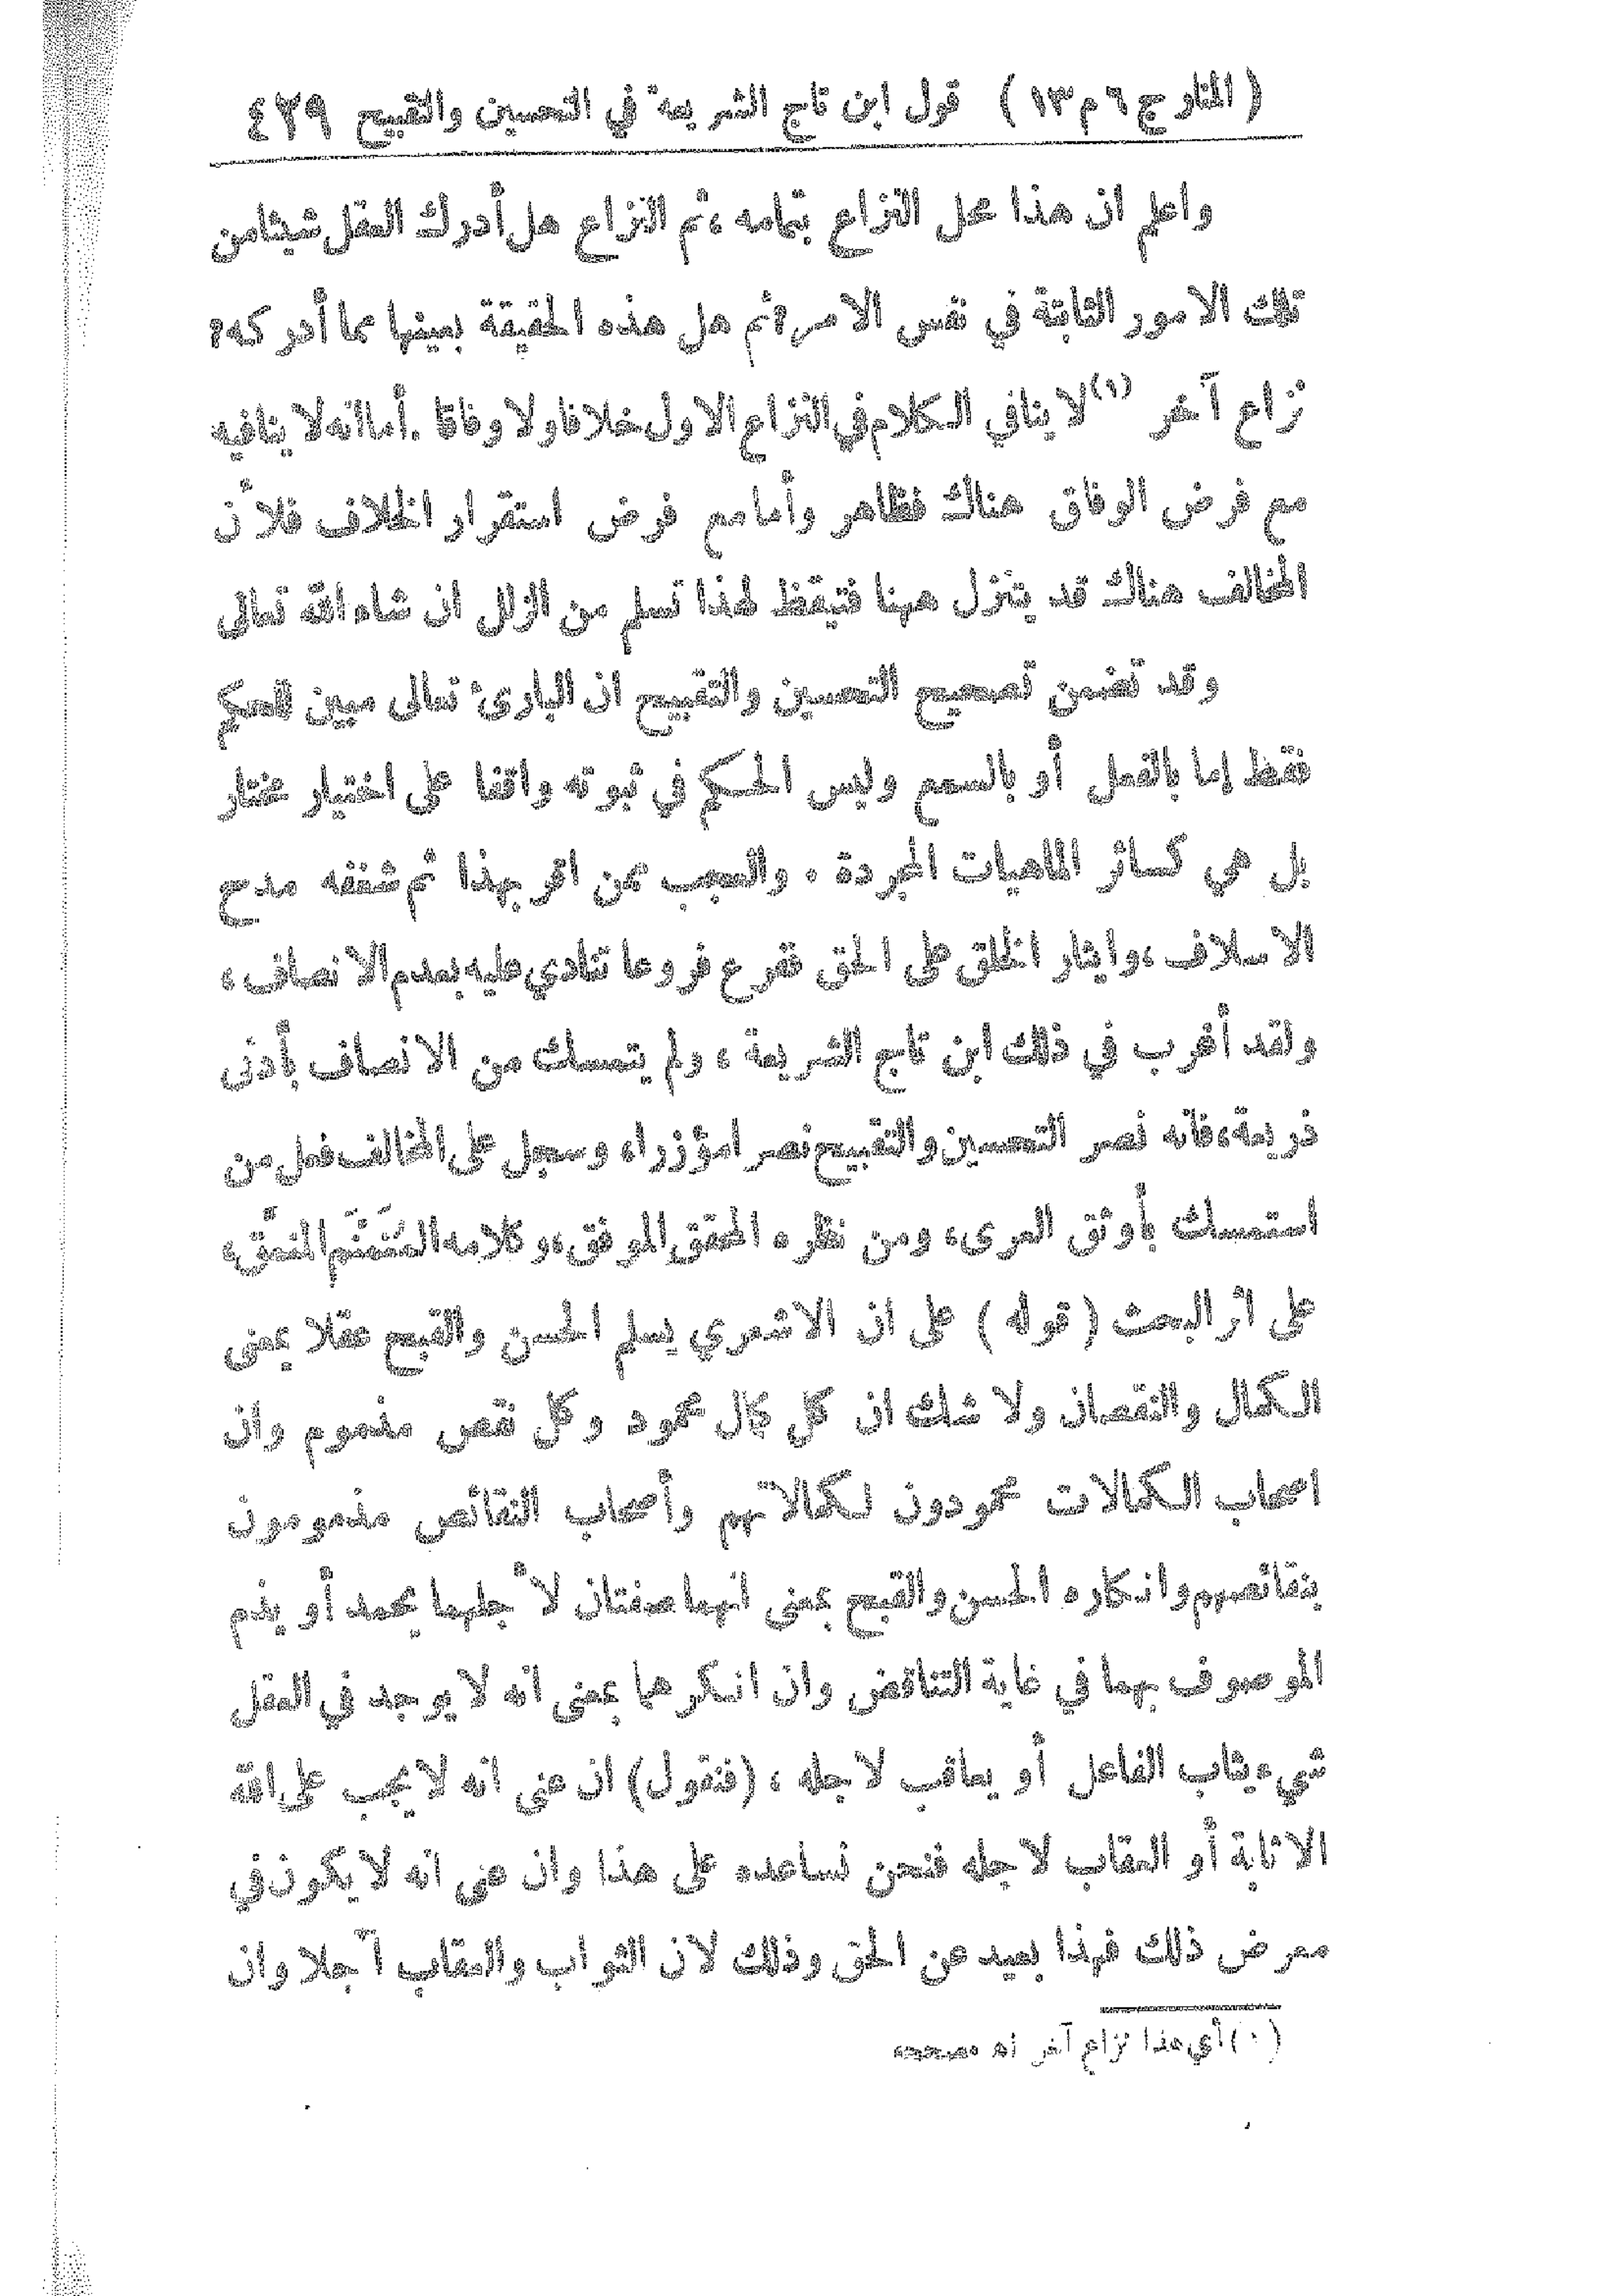 (المنار ج ٦ م ١٣) قول ابن تاج الشريعة في التحسين والتقبيح ٤٣٩
واعلم ان هذا محل النزاع بتمامه ، ثم النزاع هل أدرك العقل شيئا من
تلك الامور الثابتة في نفس الامر؟ ثم هل هذه الحقيقة بعينها مما أدركه؟
نزاع آخر (١) لا ينافي الكلام في النزاع الاول خلافا ولا وفاقا . أما انه لا ينافيه
مع فرض الوفاق هناك فظاهر وأما مع فرض استقرار الخلاف فلأن
المخالف هناك قد يتنزل ههنا فتيقظ لهذا تسلم من الزلل ان شاء الله تعالى
وقد تضمن تصحيح التحسين والتقبيح ان البارئ تعالى مبين للحكم
فقط إما بالعقل أو بالسمع وليس الحكم في ثبوته واقفا على اختيار مختار
بل هي كسائر الماهيات المجردة . والعجب ممن اقر بهذا ثم شغفه مدح
الاسلاف ، وايثار الخلق على الحق ففرع فروعا تنادي عليه بعدم الانصاف ،
ولقد أغرب في ذلك ابن تاج الشريعة ، ولم يتمسك من الانصاف بأدنى
ذريعة ، فانه نصر التحسين والتقبيح نصرا مؤزرا ، وسجل على المخالف فعل من
استمسك بأوثق العرى ، ومن نظره المحقق الموفق ، وكلامه المُنَمنَم المنمَّق ،
على اثر البحث (قوله) على ان الاشعري يسلم الحسن والقبح عقلا بمعنى
الكمال والنقصان ولا شك ان كل كمال محمود وكل نقص مذموم وان
اصحاب الكمالات محمودون لكمالاتهم وأصحاب النقائص مذمومون
بنقائصهم وانكاره الحسن والقبح بمعنى انهما صفتان لأجلهما يحمد أو يذم
الموصوف بهما في غاية التناقض وان انكرهما بمعنى انه لا يوجد في العقل
شيء يثاب الفاعل أو يعاقب لاجله ، (فنقول) ان عنى انه لا يجب على الله
الاثابة أو العقاب لاجله فنحن نساعده على هذا وان عنى انه لا يكون في
معرض ذلك فهذا بعيد عن الحق وذلك لان الثواب والعقاب آجلا وان
(١) أي هذا نزاع آخر اه مصححه